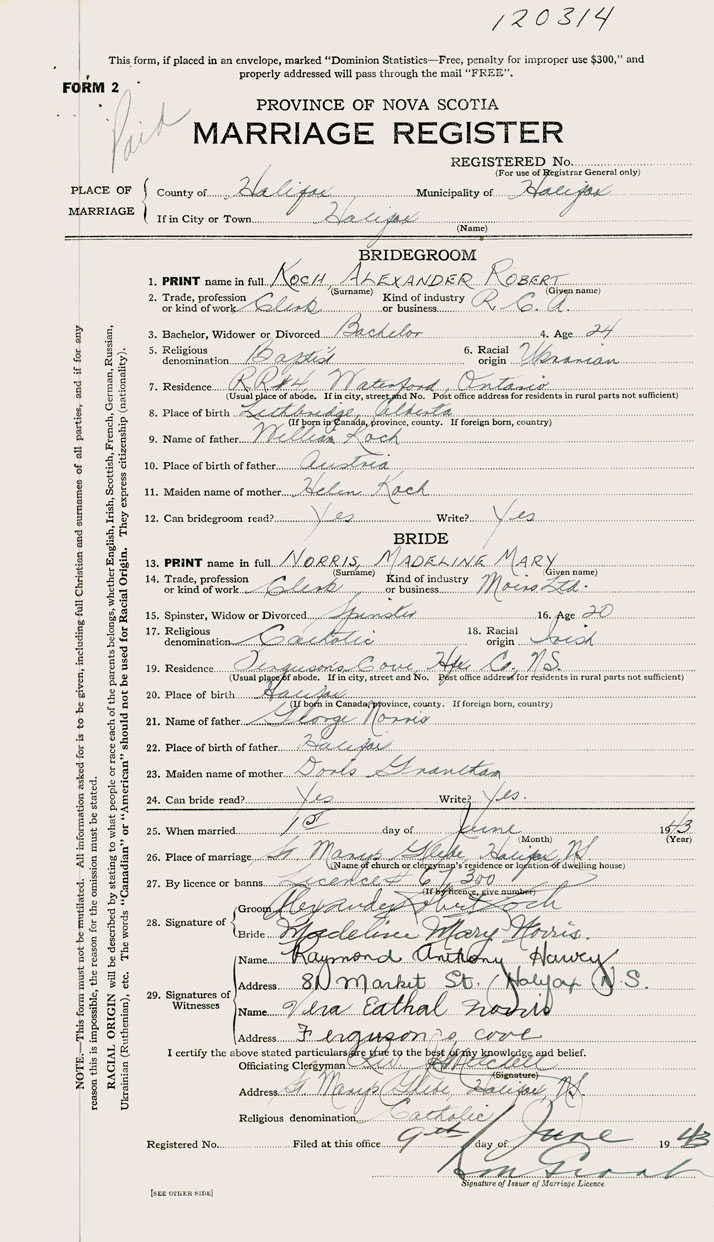 120314
This form, if placed in an envelope, marked "Dominion Statistics—Free, penalty for improper use $300," and
properly addressed will pass through the mail "FREE".
FORM 2
Paid
PROVINCE OF NOVA SCOTIA
MARRIAGE REGISTER
REGISTERED No.
(For use of Registrar General only)
PLACE OF MARRIAGE
County of Halifax Municipality of Halifax
If in City or Town Halifax
(Name)
BRIDEGROOM
1. PRINT name in full KOCH, ALEXANDER ROBERT
(Surname) (Given name)
2. Trade, profession or kind of work Clerk Kind of industry or business. R. C. A.
3. Bachelor, Widower or Divorced Bachelor 4. Age 24
5. Religious denomination Baptist 6. Racial origin Ukranian
7. Residence R.R.#4, Waterford, Ontario
(Usual place of abode. If in city, street and No. Post office address for residents in rural parts not sufficient)
8. Place of birth Lethbridge, Alberta
(If born in Canada, province, county. If foreign born, country)
9. Name of father William Koch
10. Place of birth of father Austria
11. Maiden name of mother Helen Koch
12. Can bridegroom read? Yes Write? Yes
BRIDE
13. PRINT name in full NORRIS, MADELINE MARY
(Surname) (Given name)
14. Trade, profession or kind of work Clerk Kind of industry or business. Moirs Ltd.
15. Spinster, Widow or Divorced Spinster 16. Age 20
17. Religious denomination Catholic 18. Racial origin Irish
19. Residence Fergusons Cove, Hfx Co. N.S.
(Usual place of abode. If in city, street and No. Post office address for residents in rural parts not sufficient)
20. Place of birth Halifax
(If born in Canada, province, county. If foreign born, country)
21. Name of father George Norris
22. Place of birth of father Halifax
23. Maiden name of mother Doris Granthan
24. Can bride read? Yes Write? Yes.
25. When married 1st day of June 1943
(Month) (Year)
26. Place of marriage St. Marys Glebe, Halifax, NS
(Name of church or clergyman's residence or location of dwelling house)
27. By licence or banns Licence # 61,300
(If by licence, give number)
28. Signature of
Groom Alexander Robert Koch
Bride Madeline Mary Norris.
29. Signatures of Witnesses
Name Raymond Anthony Harvey
Address 81 Market St. Halifax N.S.
Name Vera Eathal Norris
Address Ferguson's cove
I certify the above stated particulars are true to the best of my knowledge and belief.
Officiating Clergyman Rev.
(Signature)
Address St. Marys Glebe, Halifax, NS
Religious denomination Catholic
Registered No. Filed at this office 9th day of June 1943
Signature of Issuer of Marriage Licence
[SEE OTHER SIDE]
NOTE.—This form must not be mutilated. All information asked for is to be given, including full Christian and surnames of all parties, and if for any
reason this is impossible, the reason for the omission must be stated.
RACIAL ORIGIN will be described by stating to what people or race each of the parents belongs, whether English, Irish, Scottish, French, German, Russian,
Ukrainian (Ruthenian), etc. The words "Canadian" or "American" should not be used for Racial Origin. They express citizenship (nationality).